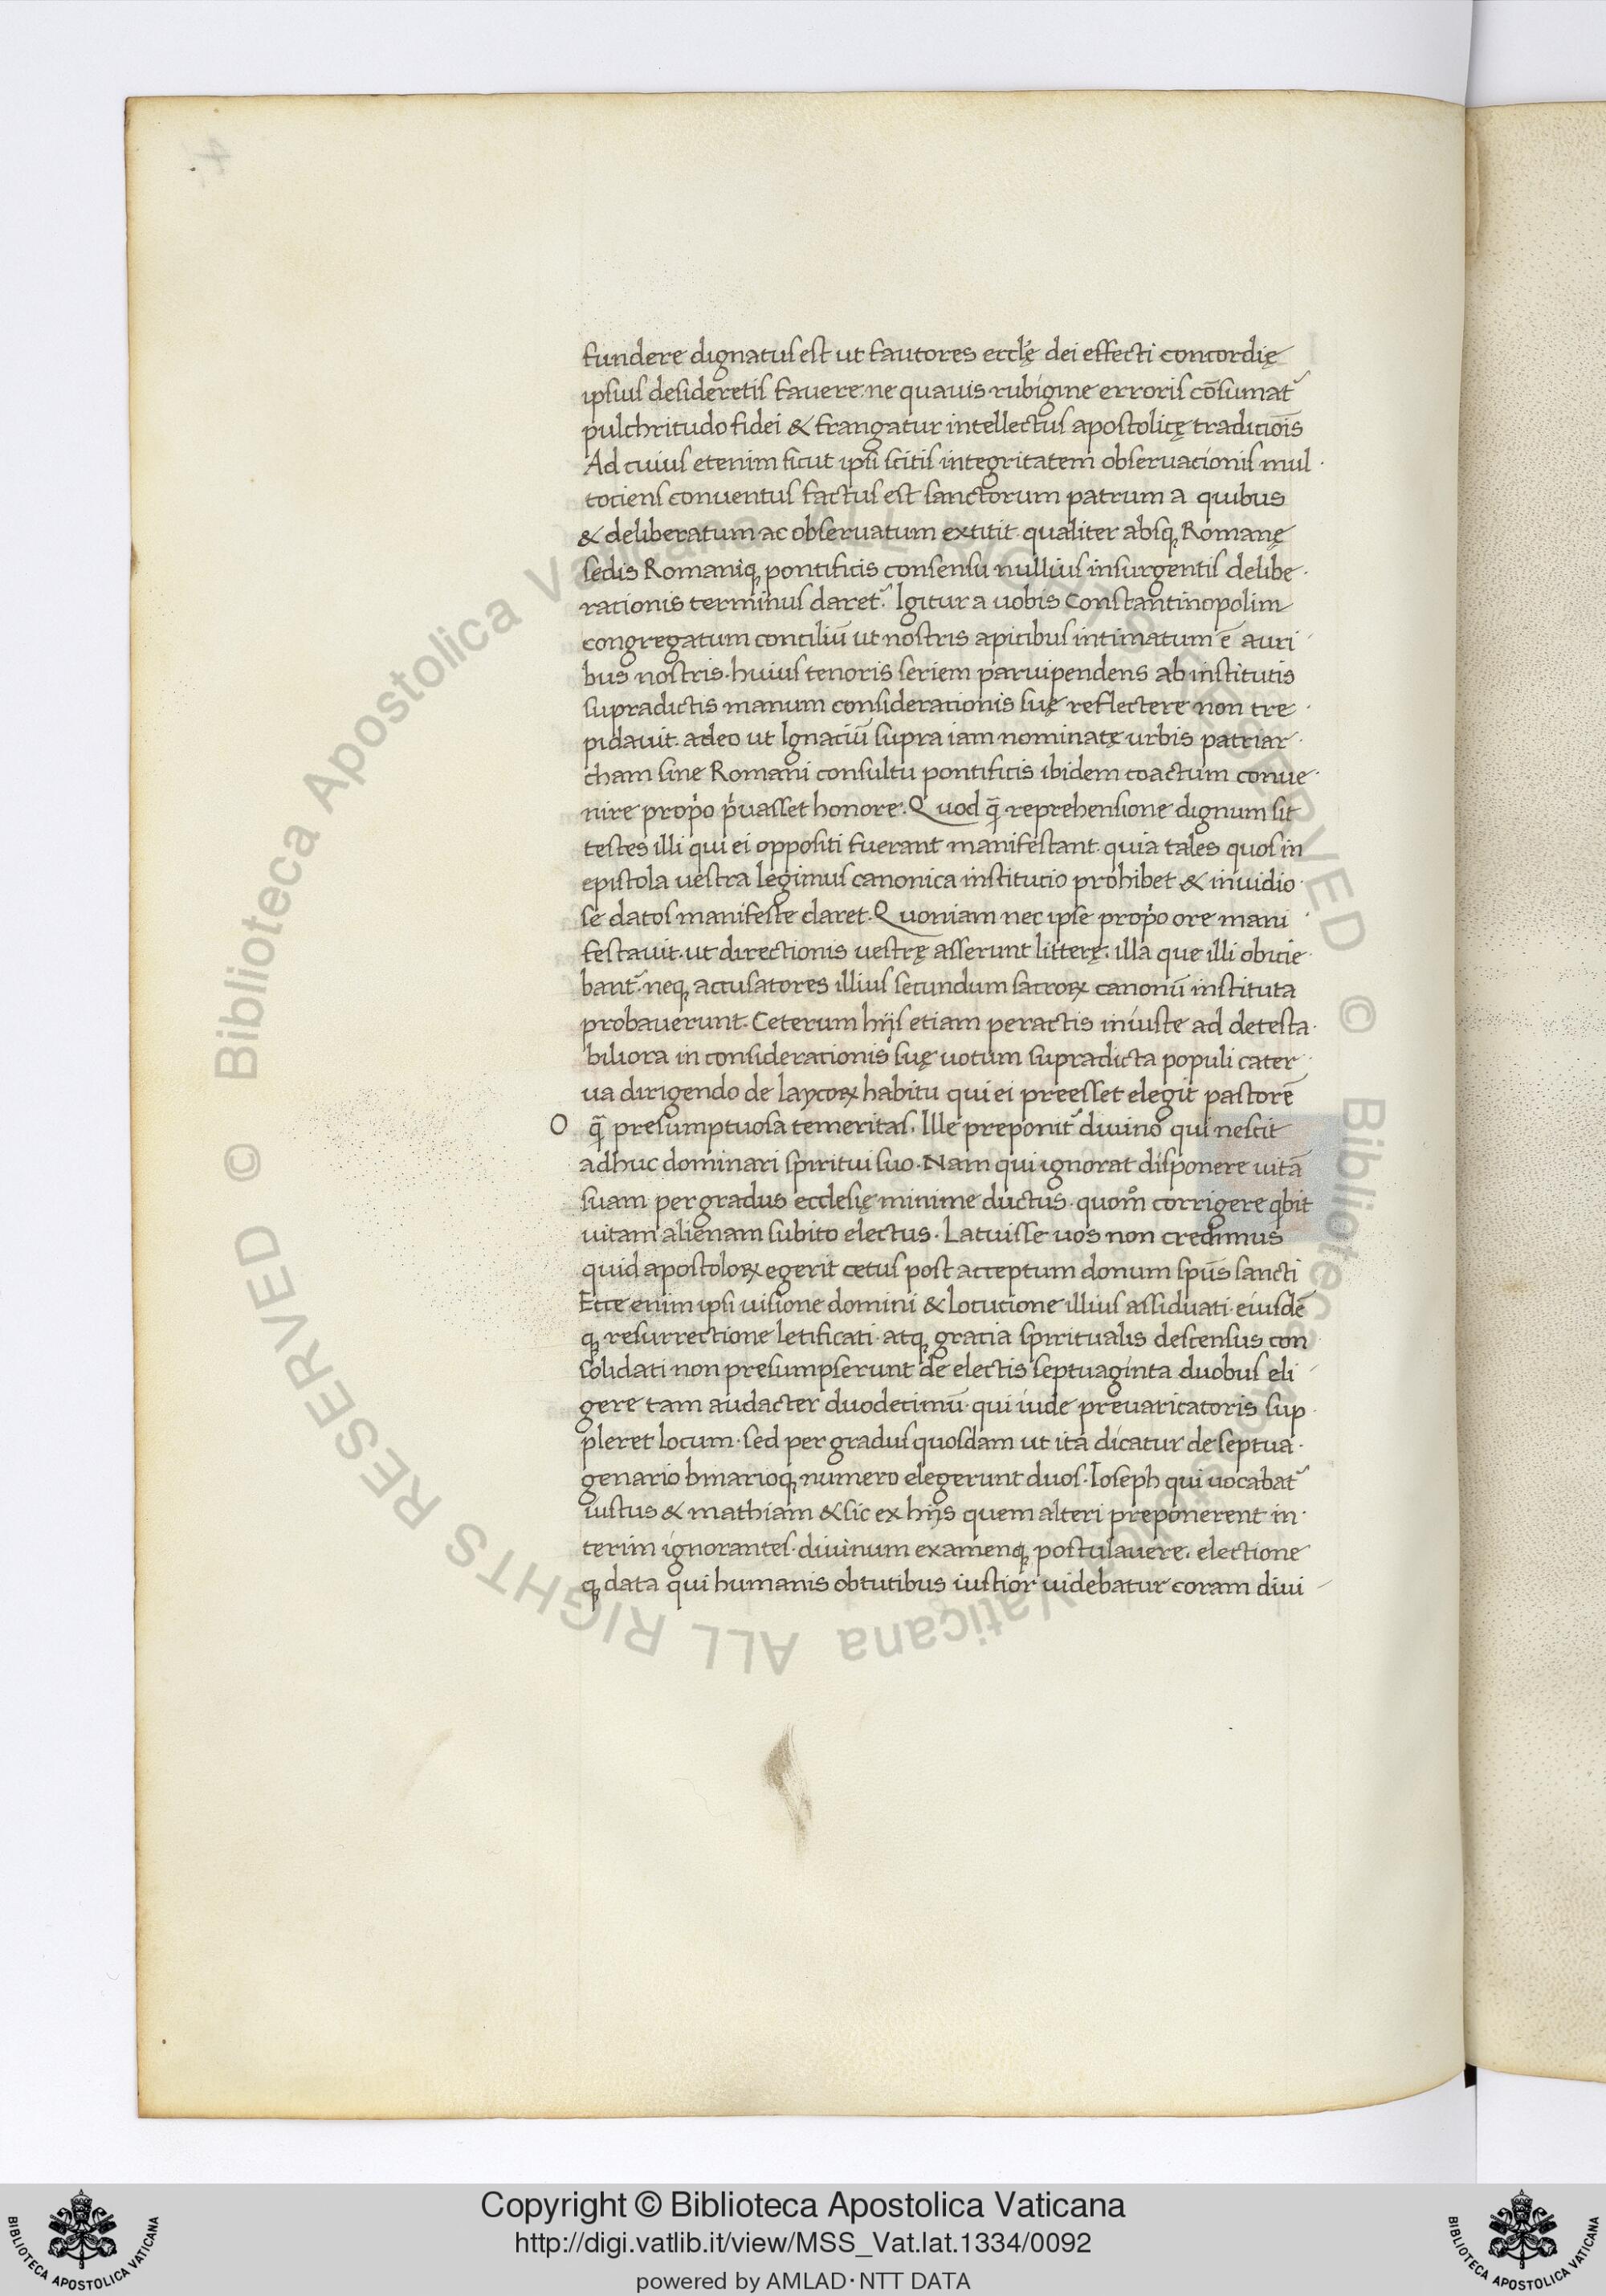 fundere dignatus est ut fautores eccl̄ę dei effecti concordię
ipsius desideretis fauere. ne quauis rubigine erroris cōsumat᷑
pulchritudo fidei & frangatur intellectus apostolicę tradicioīs
Ad cuius etenim sicut ipsi scitis integritatem obseruacionis mul
tociens conuentus factus est sanctorum patrum a quibus
& deliberatum ac obseruatum extitit. qualiter absq; Romanę
sedis Romaniq; pontificis consensu nullius insurgentis delibe
rationis terminus daret᷑. Igitur a uobis Constantinopolim
congregatum conciliū ut nostris apicibus intimatum ē auri
bus nostris. huius tenoris seriem paruipendens ab institutis
supradictis manum considerationis suę reflectere non tre
pidauit. adeo ut Ignaciū supra iam nominatę urbis patriar
cham sine Romani consultu pontificis ibidem coactum conue
nire propͥo pͥuasset honore. Quod q̄ reprehensione dignum sit
testes illi qui ei oppositi fuerant manifestant. quia tales quos in
epistola uestra legimus canonica institucio prohibet & inuidio
se datos manifeste claret. Quoniam nec ipse propͥo ore mani
festauit. ut directionis uestrę asserunt litterę. illa que illi obicie
bant᷑. neq; accusatores illius secundum sacroꝝ canonū instituta
probauerunt. Ceterum hijs etiam peractis iniuste ad detesta
biliora in considerationis suę uotum supradicta populi cater
ua dirigendo de laycoꝝ habitu qui ei preesset elegit pastorē
O q̄ presumptuosa temeritas. Ille preponit᷑ diuino qui nescit
adhuc dominari spiritui suo. Nam qui ignorat disponere uitā
suam per gradus ecclesię minime ductus. quom̊ corrigere q̇bit
uitam alienam subito electus. Latuisse uos non credimus
quid apostoloꝝ egerit cetus post acceptum donum spūs sancti
Ecce enim ipsi uisione domini & locucione illius assiduati. eiusdē
q; resurrectione letificati. atq; gratia spiritualis descensus con
solidati non presumpserunt de electis septuaginta duobus eli
gere tam audacter duodecimū. qui iude preuaricatoris sup
pleret locum. sed per gradus quosdam ut ita dicatur de septua
genario binarioq; numero elegerunt duos. Ioseph qui uocabat᷑
iustus & mathiam & sic ex hijs quem alteri preponerent in
terim ignorantes. diuinum examenq; postulauere. electione
q; data qui humanis obtutibus iustior uidebatur coram diui
© Biblioteca Apostolica Vaticana ALL RIGHTS RESERVED © Biblioteca Apostolica Vaticana ALL RIGHTS RESERVED
Copyright © Biblioteca Apostolica Vaticana
http://digi.vatlib.it/view/MSS_Vat.lat.1334/0092
powered by AMLAD·NTT DATA
BIBLIOTECA APOSTOLICA VATICANA
BIBLIOTECA APOSTOLICA VATICANA